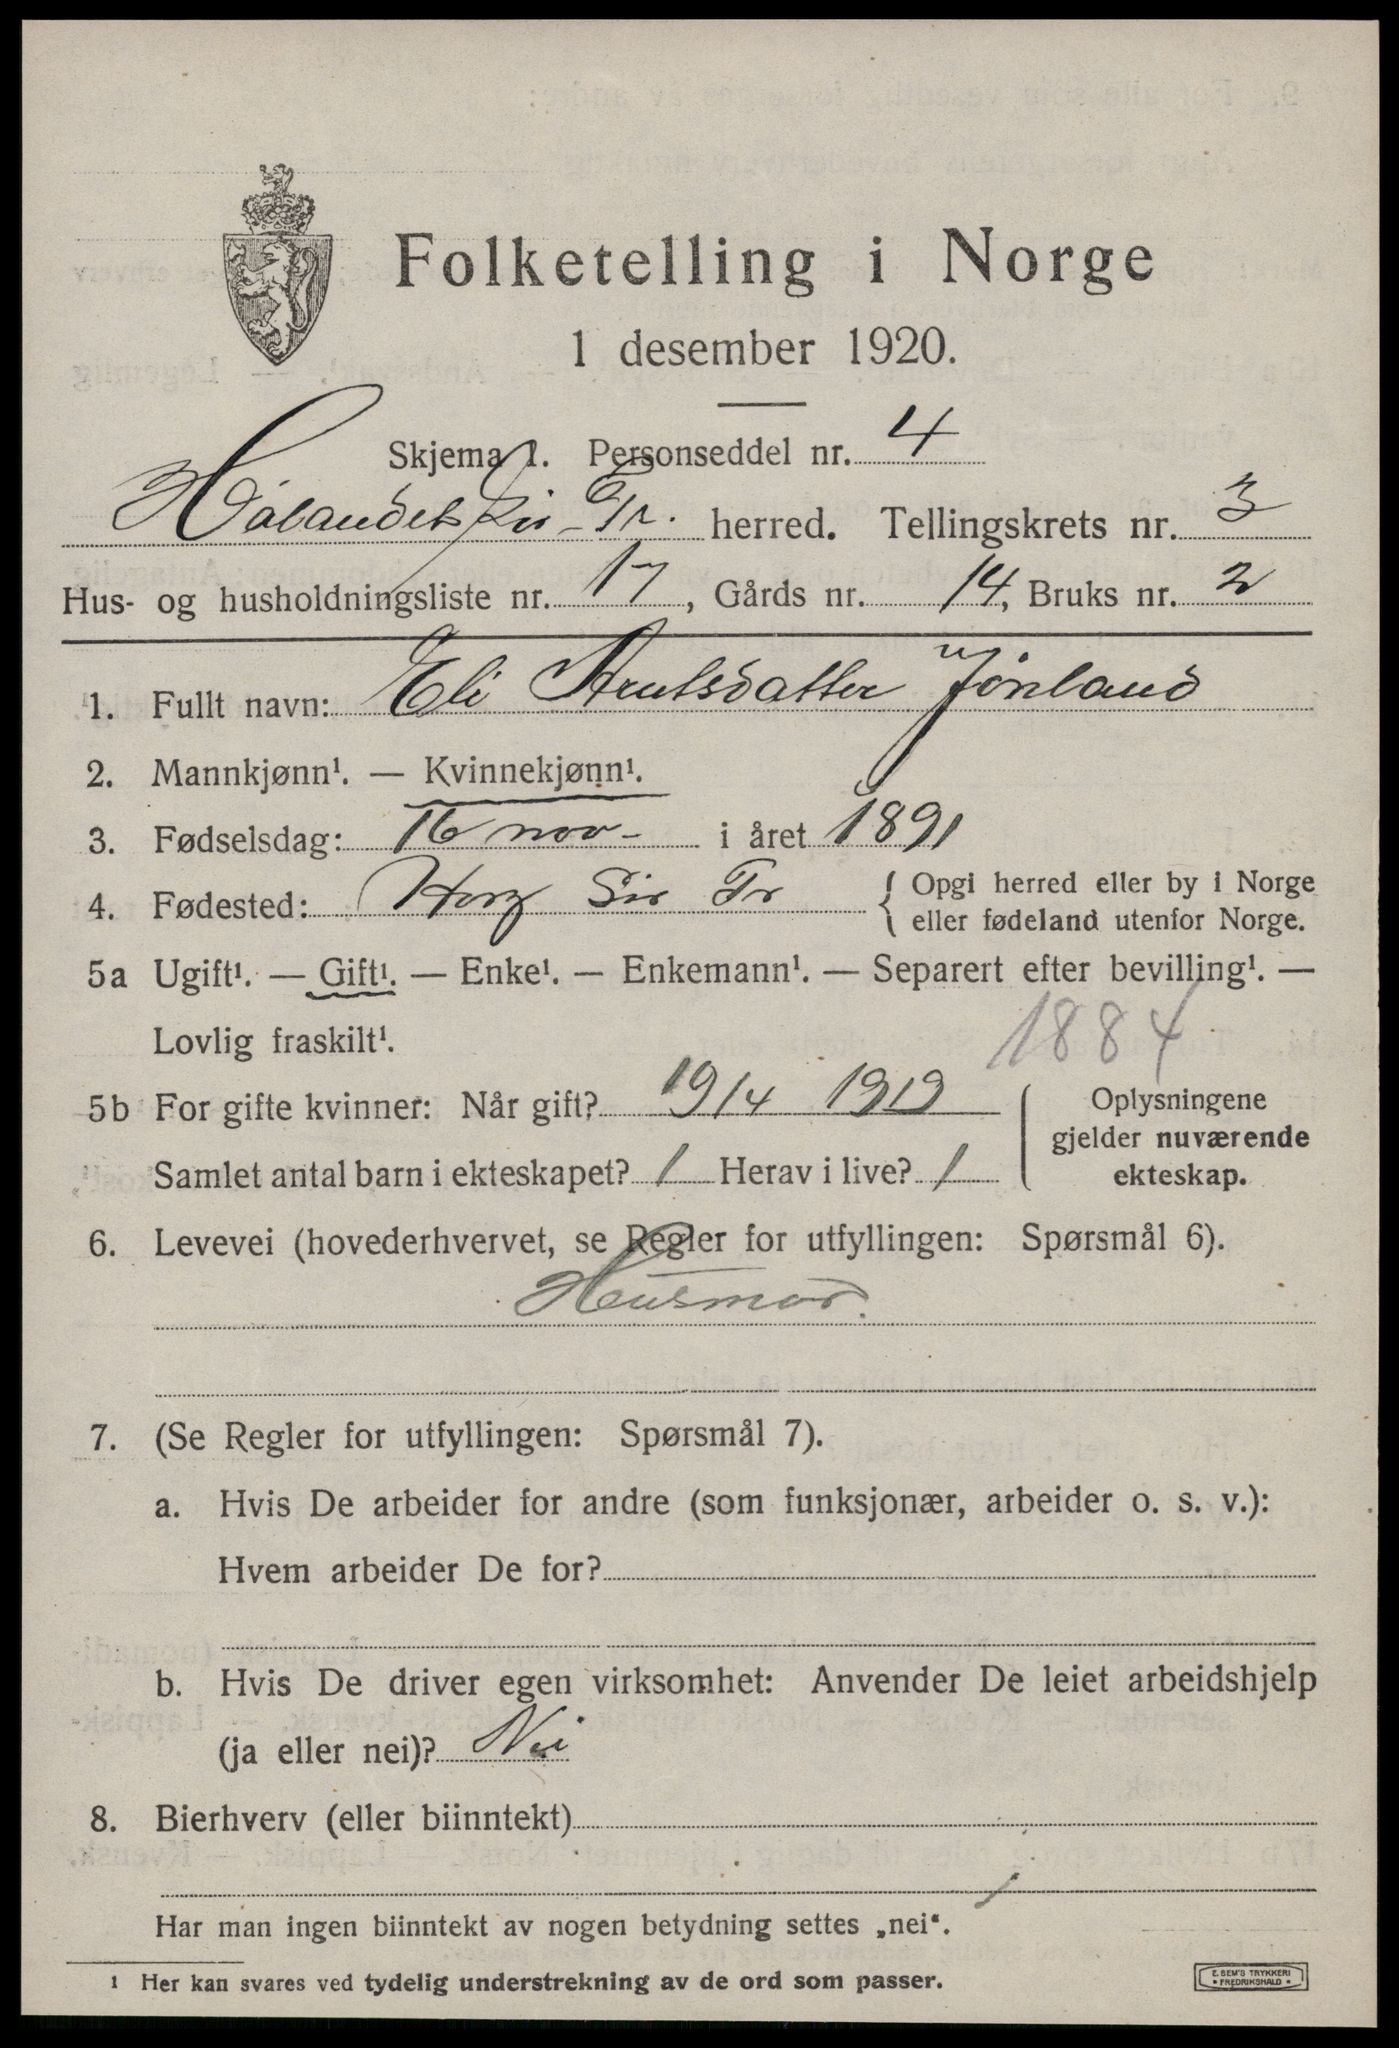 Folketelling i Norge
1 desember 1920.
Skjema 1. Personseddel nr. 4
Hølandet Sør-Tr. herred. Tellingskrets nr. 3
Hus- og husholdningsliste nr. 17, Gårds nr. 14, Bruks nr. 2
1. Fullt navn: Eli Arntsdatter Jønland
2. Mannkjønn¹. — Kvinnekjønn¹.
3. Fødselsdag: 16 nov- i året 1891
4. Fødested: Horg Sør Tr { Opgi herred eller by i Norge
eller fødeland utenfor Norge.
5a Ugift¹. — Gift¹. — Enke¹. — Enkemann¹. — Separert efter bevilling¹. —
Lovlig fraskilt¹.
1884
5b For gifte kvinner: Når gift? 19/4 1919
Samlet antal barn i ekteskapet? 1 Herav i live? 1
Oplysningene
gjelder nuværende
ekteskap.
6. Levevei (hovederhvervet, se Regler for utfyllingen: Spørsmål 6).
Husmor.
7. (Se Regler for utfyllingen: Spørsmål 7).
a. Hvis De arbeider for andre (som funksjonær, arbeider o. s. v.):
Hvem arbeider De for?
b. Hvis De driver egen virksomhet: Anvender De leiet arbeidshjelp
(ja eller nei)? Nei
8. Bierhverv (eller biinntekt)
Har man ingen biinntekt av nogen betydning settes „nei“.
¹ Her kan svares ved tydelig understrekning av de ord som passer.
E. SEM'S TRYKKERI
• FREDRIKSHALD •